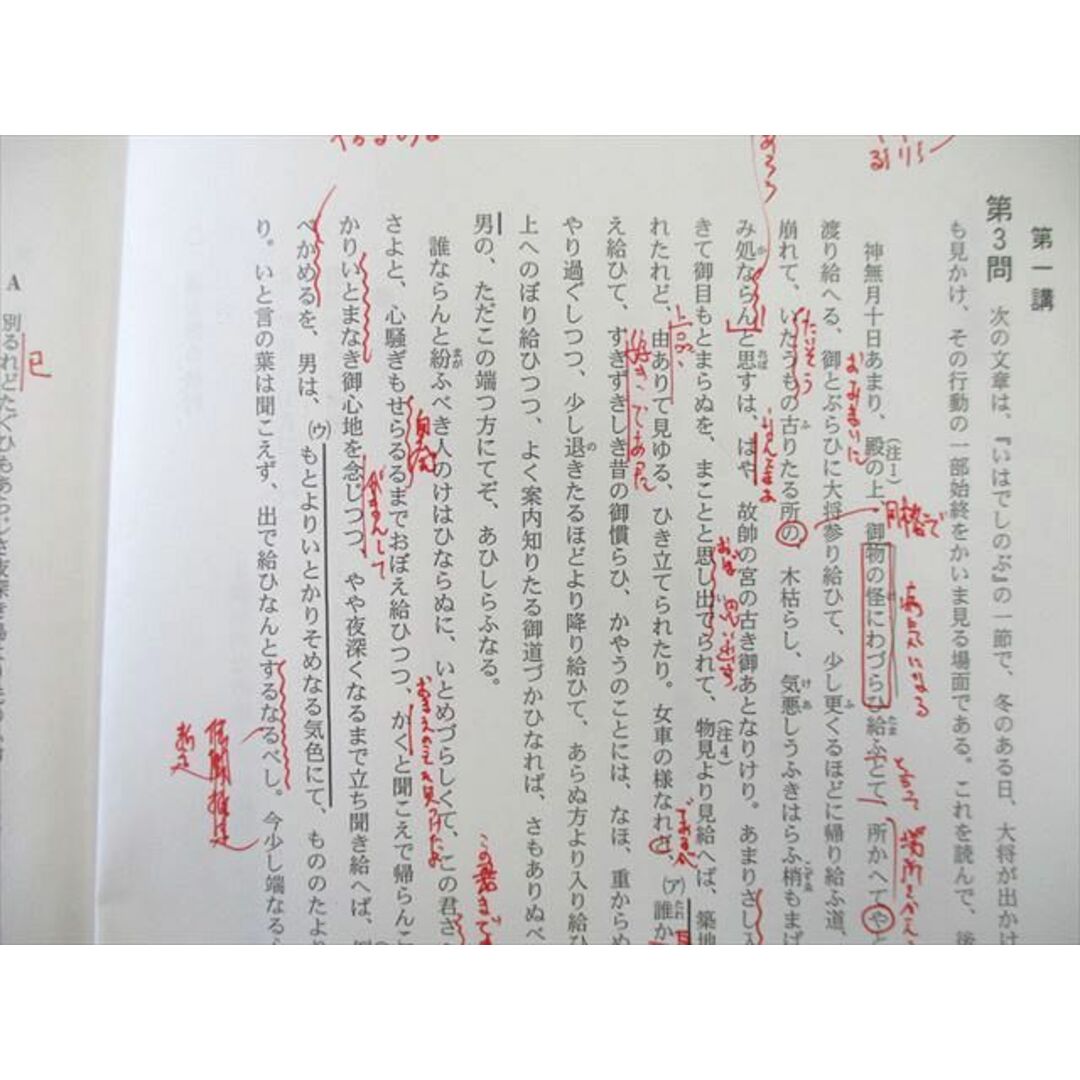 第一講
第3問 次の文章は、『いはでしのぶ』の一節で、冬のある日、大将が出かけ
も見かけ、その行動の一部始終をかいま見る場面である。これを読んで、後
神無月十日あまり、殿の上、(注1)御物の怪にわづらひ給ふとて、所かへてやと
渡り給へる、御とぶらひに大将参り給ひて、少し更くるほどに帰り給ふ道、
崩れて、いたうもの古りたる所の、木枯らし、気悪しうふきはらふ梢もまば
み処ならんと思すは、はや、故帥の宮の古き御あとなりけり。あまりさし入
きて御目もとまらぬを、まことと思し出でられて、(注4)物見より見給へば、築地
れたれど、由ありて見ゆる、ひき立てられたり。女車の様なれど、(ア)誰か
え給ひて、すきずきしき昔の御慣らひ、かやうのことには、なほ、重からぬ
やり過ぐしつつ、少し退きたるほどより降り給ひて、あらぬ方より入り給ひ
上へのぼり給ひつつ、よく案内知りたる御道づかひなれば、さもありぬべ
男の、ただこの端つ方にてぞ、あひしらふなる。
誰ならんと紛ふべき人のけはひならぬに、いとめづらしくて、この君さ
さよと、心騒ぎもせらるるまでおぼえ給ひつつ、かくと聞こえで帰らんこ
かりいとまなき御心地を念じつつ、やや夜深くなるまで立ち聞き給へば、
べかめるを、男は、(ウ)もとよりいとかりそめなる気色にて、もののたより
り。いと言の葉は聞こえず、出で給ひなんとするなるべし。今少し端なる
A 別るれどたぐひもあらじさ夜深き
同格で
病気になる
とって
場所をかえ
おみまいに
たいそう
なんとまあ
思い出す
上品、
好きであった
であるが
自発
がまんして
この君まで
伝聞推定
断定
已